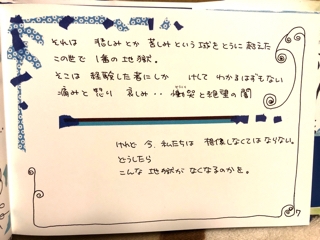 それは 悲しみとか 苦しみという域をとうに越えた
この世で 1番の地獄。
そこは 経験した者にしか けして わかるはずもない
痛みと怒り 哀しみ‥ 衝突と絶望の闇
けれど 今、私たちは 想像しなくてはならない。
どうしたら
こんな 地獄がなくなるのかを。
7